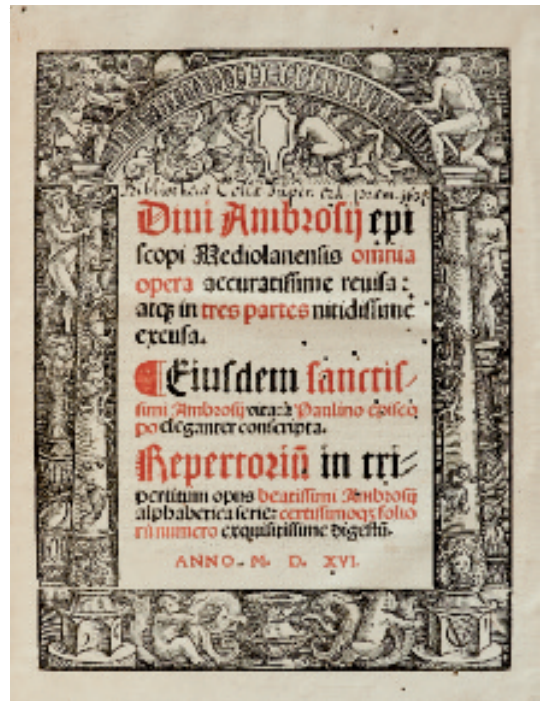 Bibliotheca Coll
Diui Ambrosij epi
scopi Mediolanensis omnia
opera accuratissime reuisa:
atqꝫ in tres partes nitidissime
excusa.
¶Eiusdem sanctis⸗
simi Ambrosij vita: a Paulino episco
po eleganter conscripta.
Repertoriũ in tri⸗
pertitum opus beatissimi Ambrosij
alphabetica serie: certissimoqꝫ folio
rũ numero exquisitissime digestũ.
ANNO. M. D. XVI.